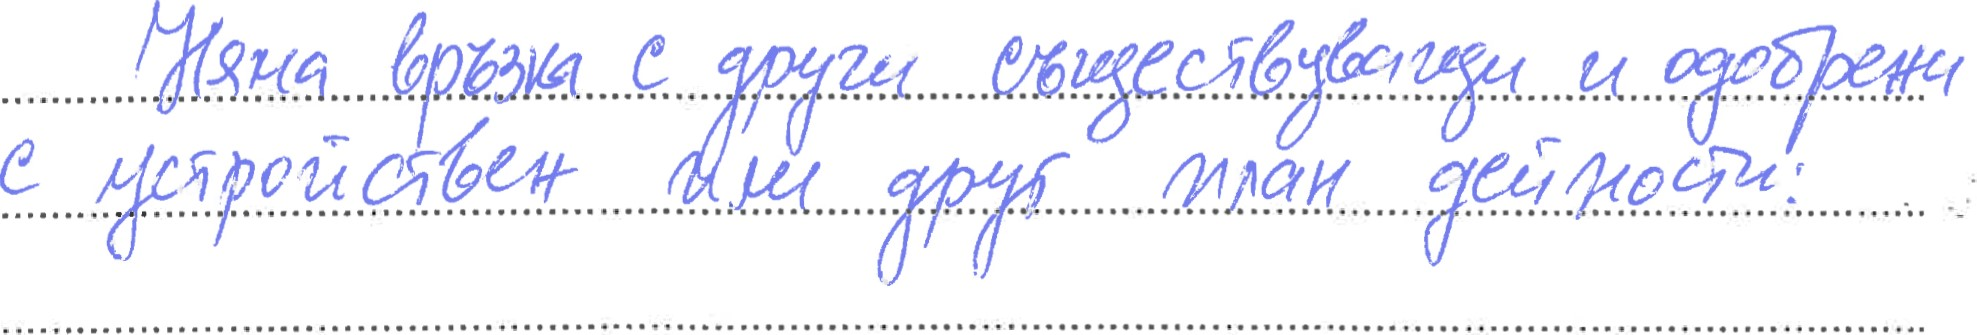 Няма връзка с други съществуващи и одобрени
с устройствен или друг план дейности.